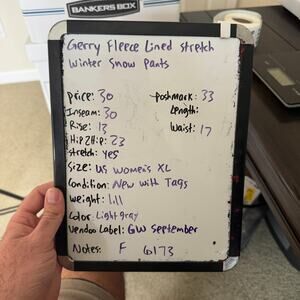 BANKERS BOX
Gerry Fleece Lined stretch
winter snow pants
price: 30
postmark: 33
Inseam: 30
Length:
Rise: 13
Waist: 17
Hip2Hip: 23
stretch: yes
Size: US Women's XL
Condition: New with Tags
weight: 1.11
Color: Light gray
Vendoo Label: GW September
Notes: F 6173